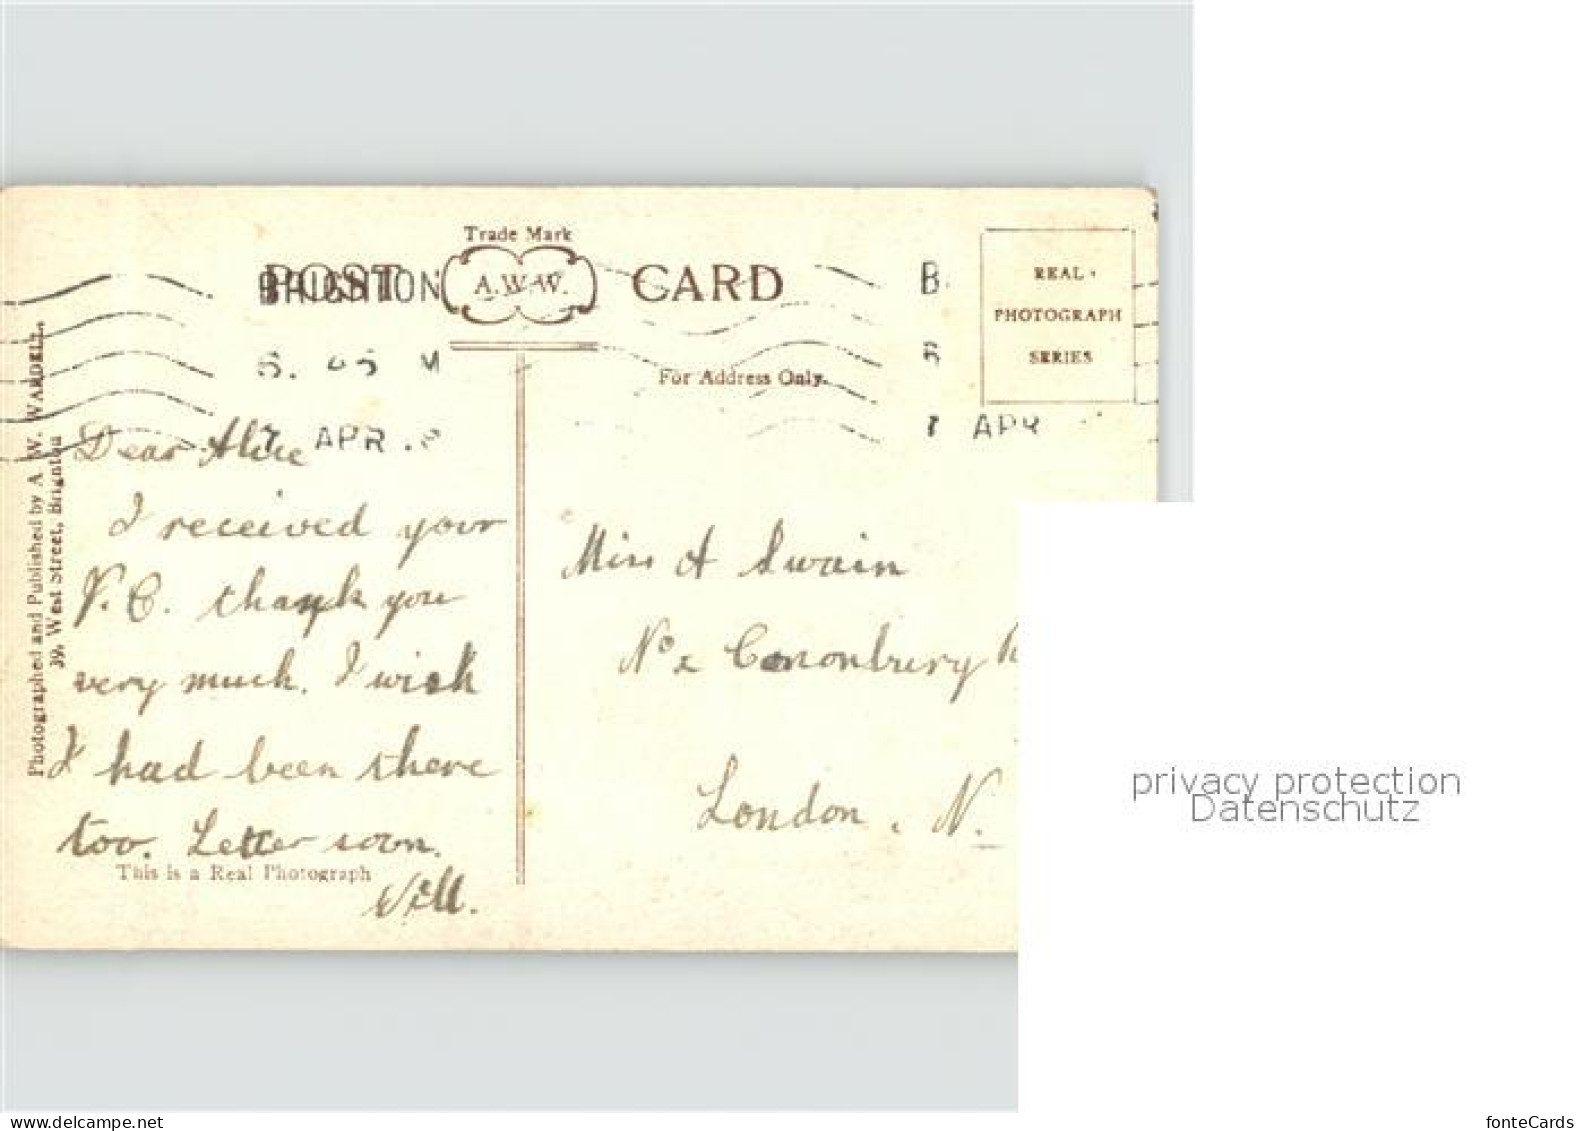 Trade Mark
POST A.W.W. CARD
BRIGHTON
REAL
PHOTOGRAPH
SERIES
For Address Only.
APR
APR
Photographed and Published by A. W. WARDELL,
39, West Street, Brighton
Dear Alice
I received your
P.C. thank you
very much. I wish
I had been there
too. Letter soon.
Will.
This is a Real Photograph
Miss A Swain
No 2 Canonbury
London. N.
privacy protection
Datenschutz
www.delcampe.net
fonteCards